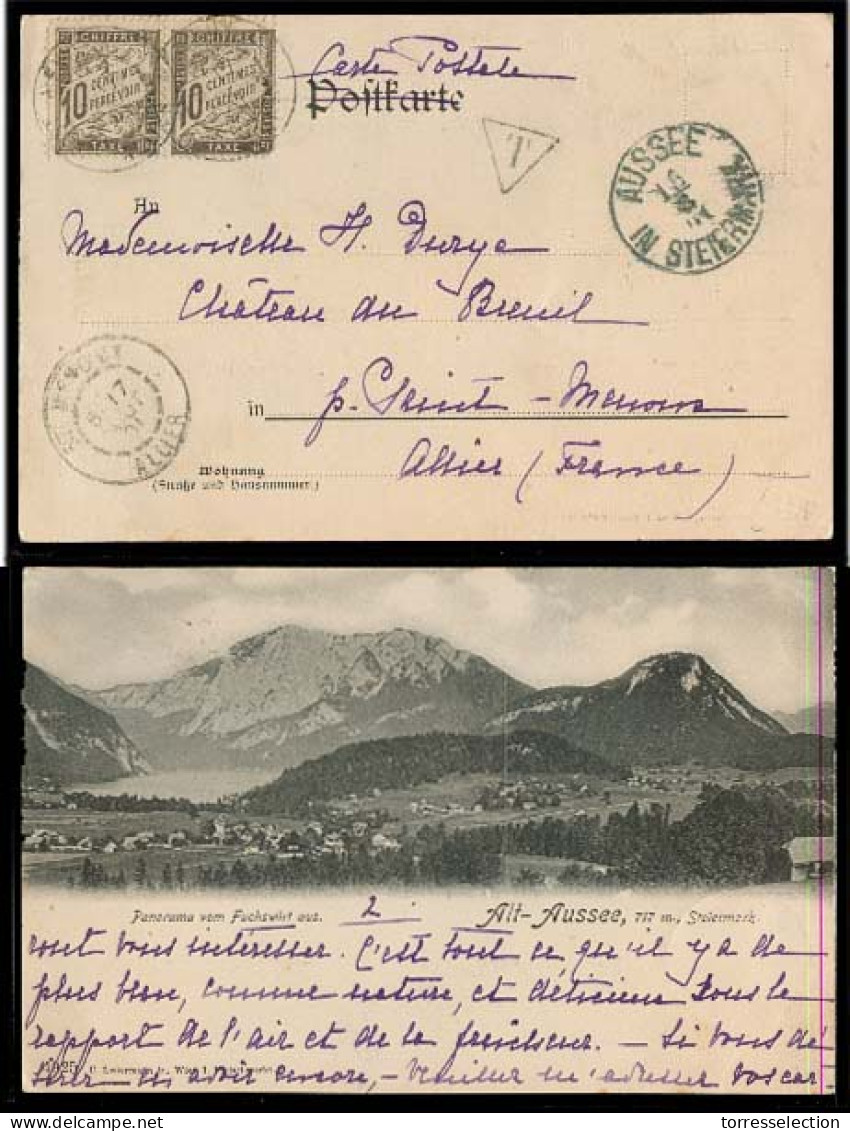 CHIFFRE CHIFFRE
10 CENTIMES A PERCEVOIR 10 CENTIMES A PERCEVOIR
TAXE TAXE
Carte Postale
Postkarte
T
AUSSEE
IN STEIERMARK
An
Mademoiselle H. Durye
Château du Breuil
17
ALLIER
in p. Saint-Menoux
Allier (France)
Wohnung
(Straße und Hausnummer)
Panorama vom Fuchswirt aus. 2 Alt-Aussee, 717 m., Steiermark.
ront vous intéresser. C'est tout ce qu'il y a de
plus beau, comme nature, et délicieux sous le
rapport de l'air et de la fraîcheur. - Si vous dé
sirer m'avoir encore, - veuillez m'adresser vos car-
torresselection